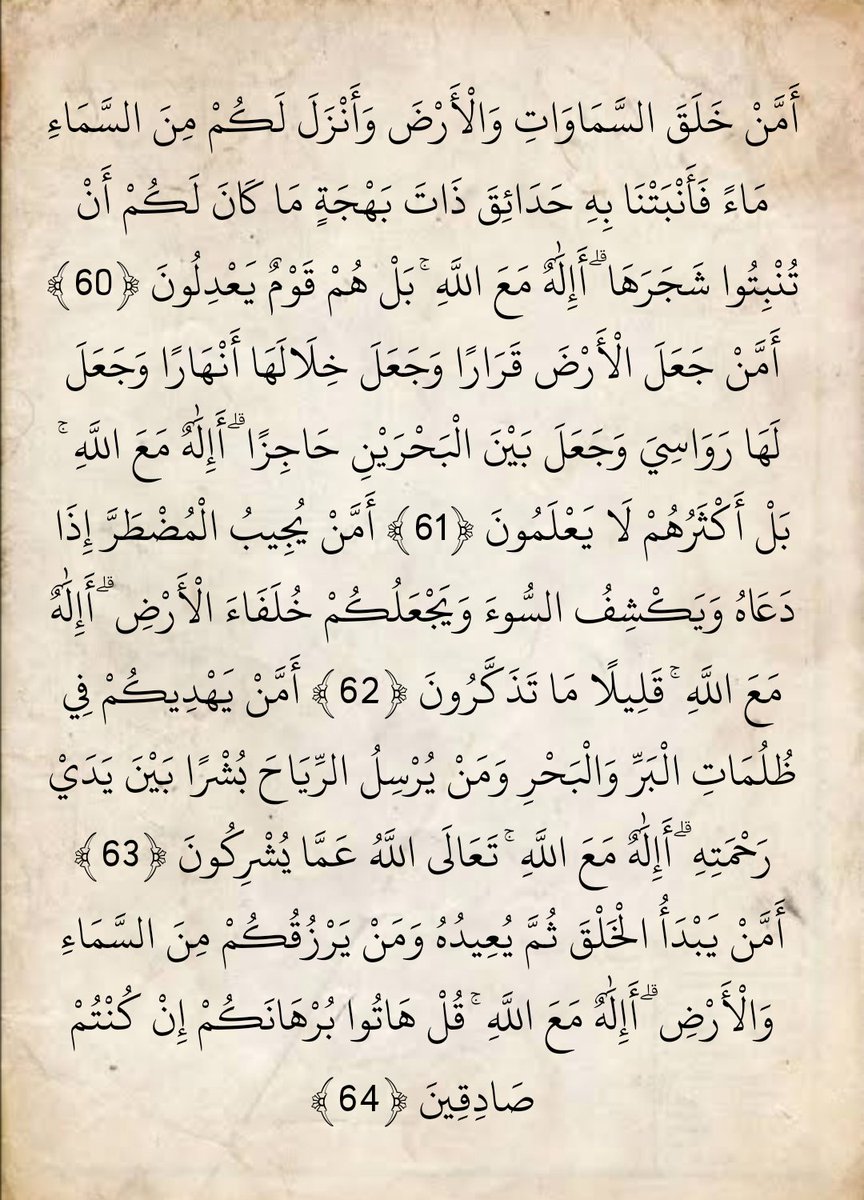 أَمَّنْ خَلَقَ السَّمَاوَاتِ وَالْأَرْضَ وَأَنْزَلَ لَكُمْ مِنَ السَّمَاءِ
مَاءً فَأَنْبَتْنَا بِهِ حَدَائِقَ ذَاتَ بَهْجَةٍ مَا كَانَ لَكُمْ أَنْ
تُنْبِتُوا شَجَرَهَا ۗ أَإِلَٰهٌ مَعَ اللَّهِ ۚ بَلْ هُمْ قَوْمٌ يَعْدِلُونَ ﴿60﴾
أَمَّنْ جَعَلَ الْأَرْضَ قَرَارًا وَجَعَلَ خِلَالَهَا أَنْهَارًا وَجَعَلَ
لَهَا رَوَاسِيَ وَجَعَلَ بَيْنَ الْبَحْرَيْنِ حَاجِزًا ۗ أَإِلَٰهٌ مَعَ اللَّهِ ۚ
بَلْ أَكْثَرُهُمْ لَا يَعْلَمُونَ ﴿61﴾ أَمَّنْ يُجِيبُ الْمُضْطَرَّ إِذَا
دَعَاهُ وَيَكْشِفُ السُّوءَ وَيَجْعَلُكُمْ خُلَفَاءَ الْأَرْضِ ۗ أَإِلَٰهٌ
مَعَ اللَّهِ ۚ قَلِيلًا مَا تَذَكَّرُونَ ﴿62﴾ أَمَّنْ يَهْدِيكُمْ فِي
ظُلُمَاتِ الْبَرِّ وَالْبَحْرِ وَمَنْ يُرْسِلُ الرِّيَاحَ بُشْرًا بَيْنَ يَدَيْ
رَحْمَتِهِ ۗ أَإِلَٰهٌ مَعَ اللَّهِ ۚ تَعَالَى اللَّهُ عَمَّا يُشْرِكُونَ ﴿63﴾
أَمَّنْ يَبْدَأُ الْخَلْقَ ثُمَّ يُعِيدُهُ وَمَنْ يَرْزُقُكُمْ مِنَ السَّمَاءِ
وَالْأَرْضِ ۗ أَإِلَٰهٌ مَعَ اللَّهِ ۚ قُلْ هَاتُوا بُرْهَانَكُمْ إِنْ كُنْتُمْ
صَادِقِينَ ﴿64﴾